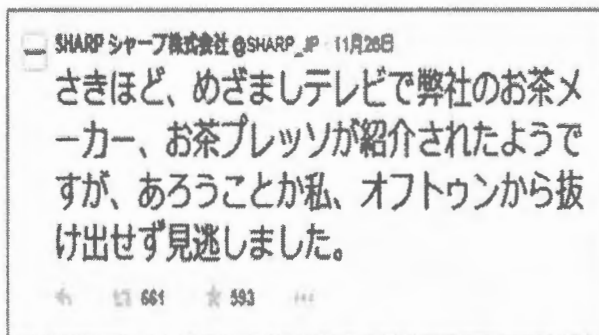 SHARP シャープ株式会社 @SHARP_JP 11月28日
さきほど、めざましテレビで弊社のお茶メ
ーカー、お茶プレッソが紹介されたようで
すが、あろうことか私、オフトゥンから抜
け出せず見逃しました。
661 593